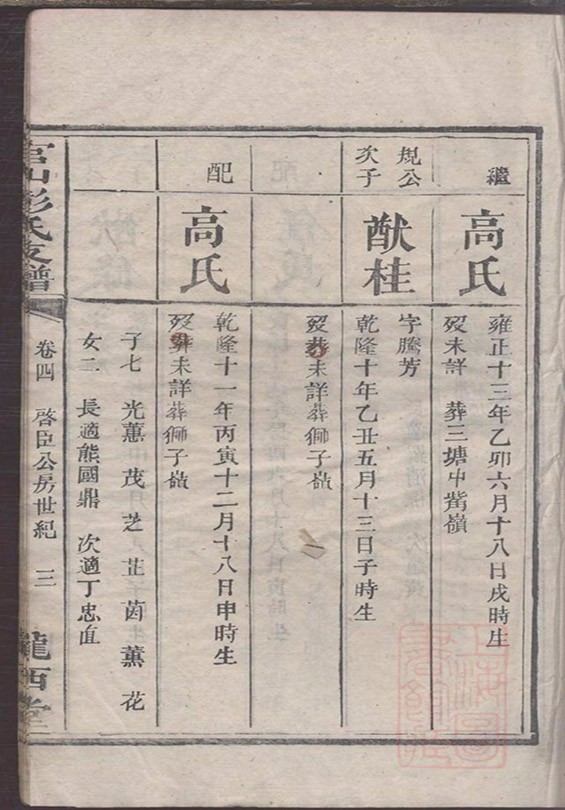 繼
高氏
雍正十三年乙卯六月十八日戌時生
歿未詳 葬三塘中嘴嶺
規公
次子
猷桂
字騰芳
乾隆十年乙丑五月十三日子時生
歿葬未詳葬獅子嶺
配
高氏
乾隆十一年丙寅十二月十八日申時生
歿葬未詳葬獅子嶺
子七 光蕙 茂芝 芷 茵 薰 花
女二 長適熊國鼎 次適丁忠直
官山彭氏支譜
卷四 啓臣公房世紀 三
隴西堂